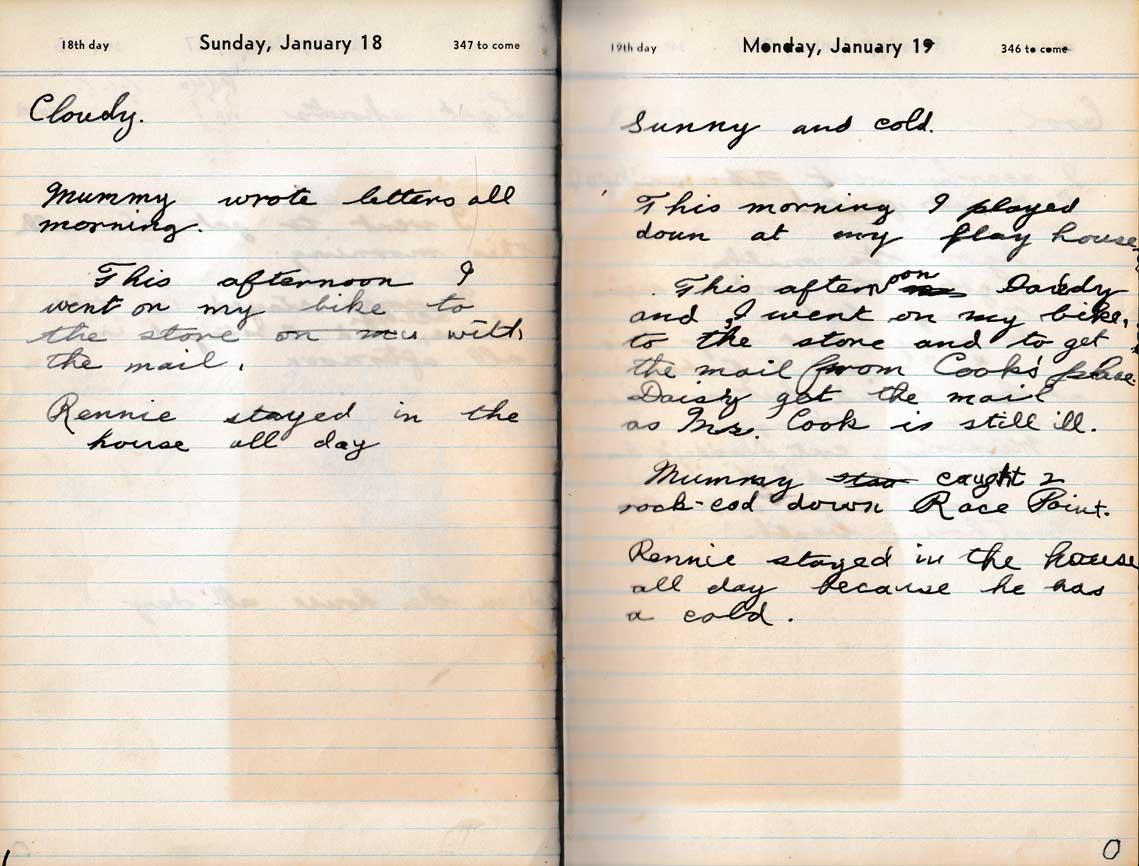 18th day Sunday, January 18 347 to come
Cloudy.
Mummy wrote letters all
morning.
This afternoon I
went on my bike to
the store on mu with
the mail.
Rennie stayed in the
house all day
19th day Monday, January 19 346 to come
Sunny and cold.
This morning I played
down at my play house
This afternoon Daddy
and I went on my bike,
to the store and to get
the mail from Cook's place.
Daisy got the mail
as Mrs. Cook is still ill.
Mummy caught 2
rock-cod down Race Point.
Rennie stayed in the house
all day because he has
a cold.